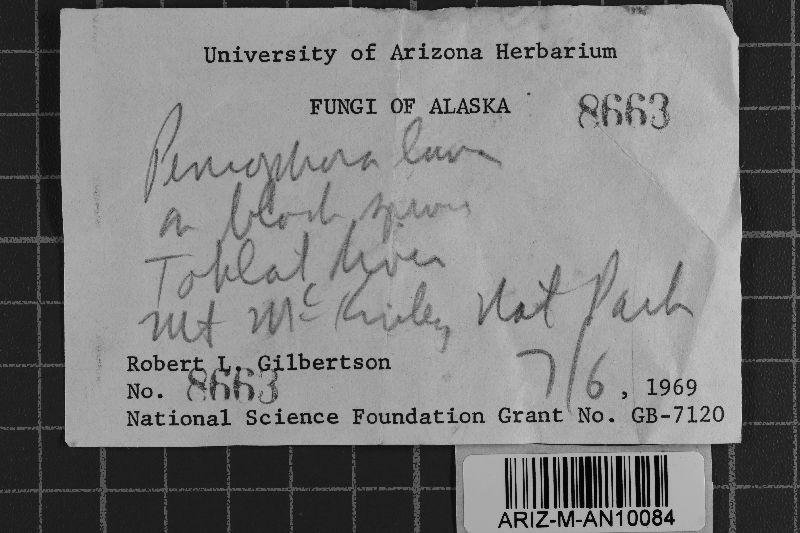 University of Arizona Herbarium
FUNGI OF ALASKA 8663
Peniophora
on black spruce
Toklat River
Mt McKinley Nat Park
Robert L. Gilbertson 7/6, 1969
No. 8663
National Science Foundation Grant No. GB-7120
ARIZ-M-AN10084